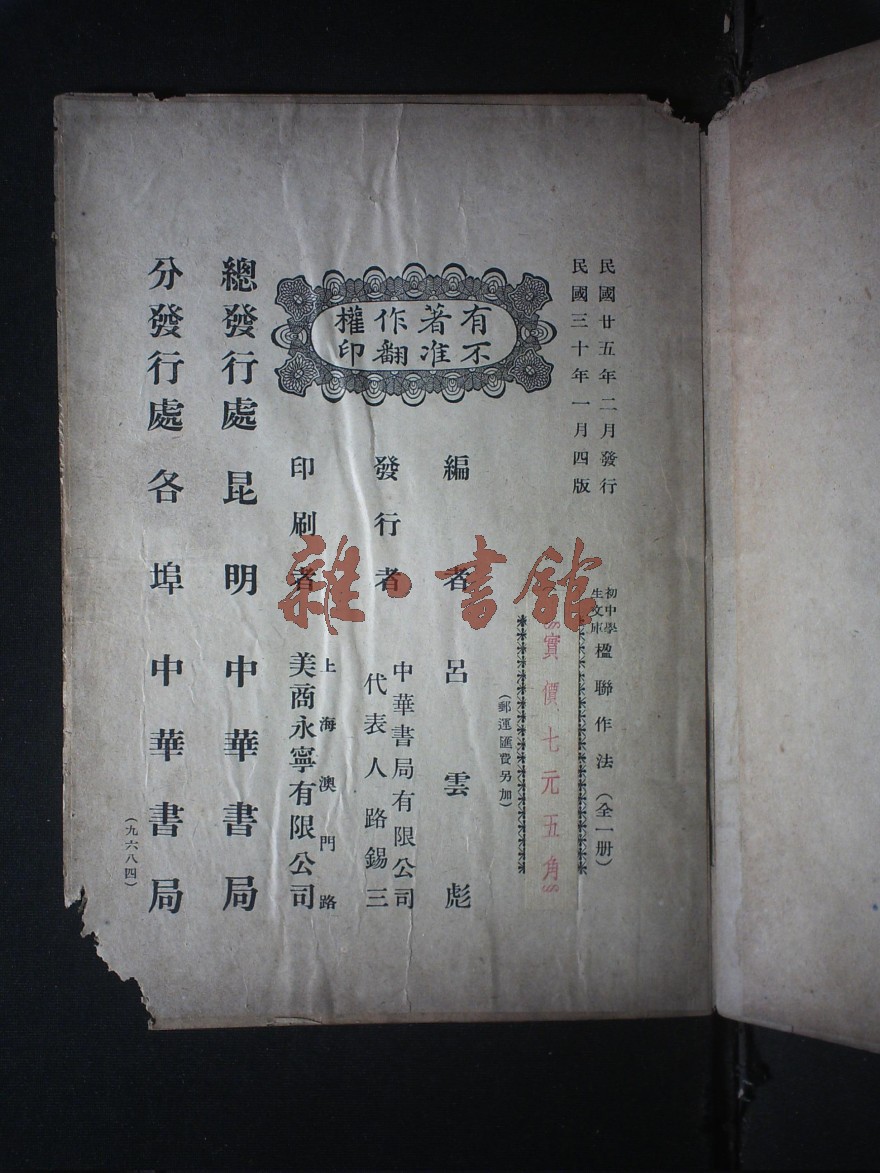 民國廿五年二月發行
民國三十年一月四版
初中學生文庫
楹聯作法（全一册）
實價七元五角
（郵運匯費另加）
有著作權
不准翻印
編者 呂雲彪
發行者 中華書局有限公司
代表人路錫三
印刷者 上海澳門路
美商永寧有限公司
總發行處 昆明中華書局
分發行處 各埠中華書局
（九六八四）
雜·書館